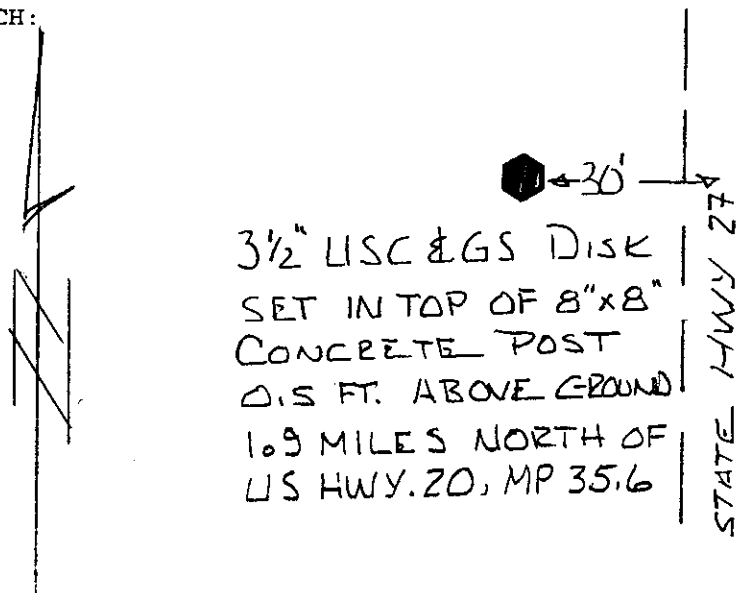 CH:
30'
3½" USC & GS DISK
SET IN TOP OF 8"x8"
CONCRETE POST
0.5 FT. ABOVE GROUND
1.9 MILES NORTH OF
US HWY. 20, MP 35.6
STATE HWY 27
N